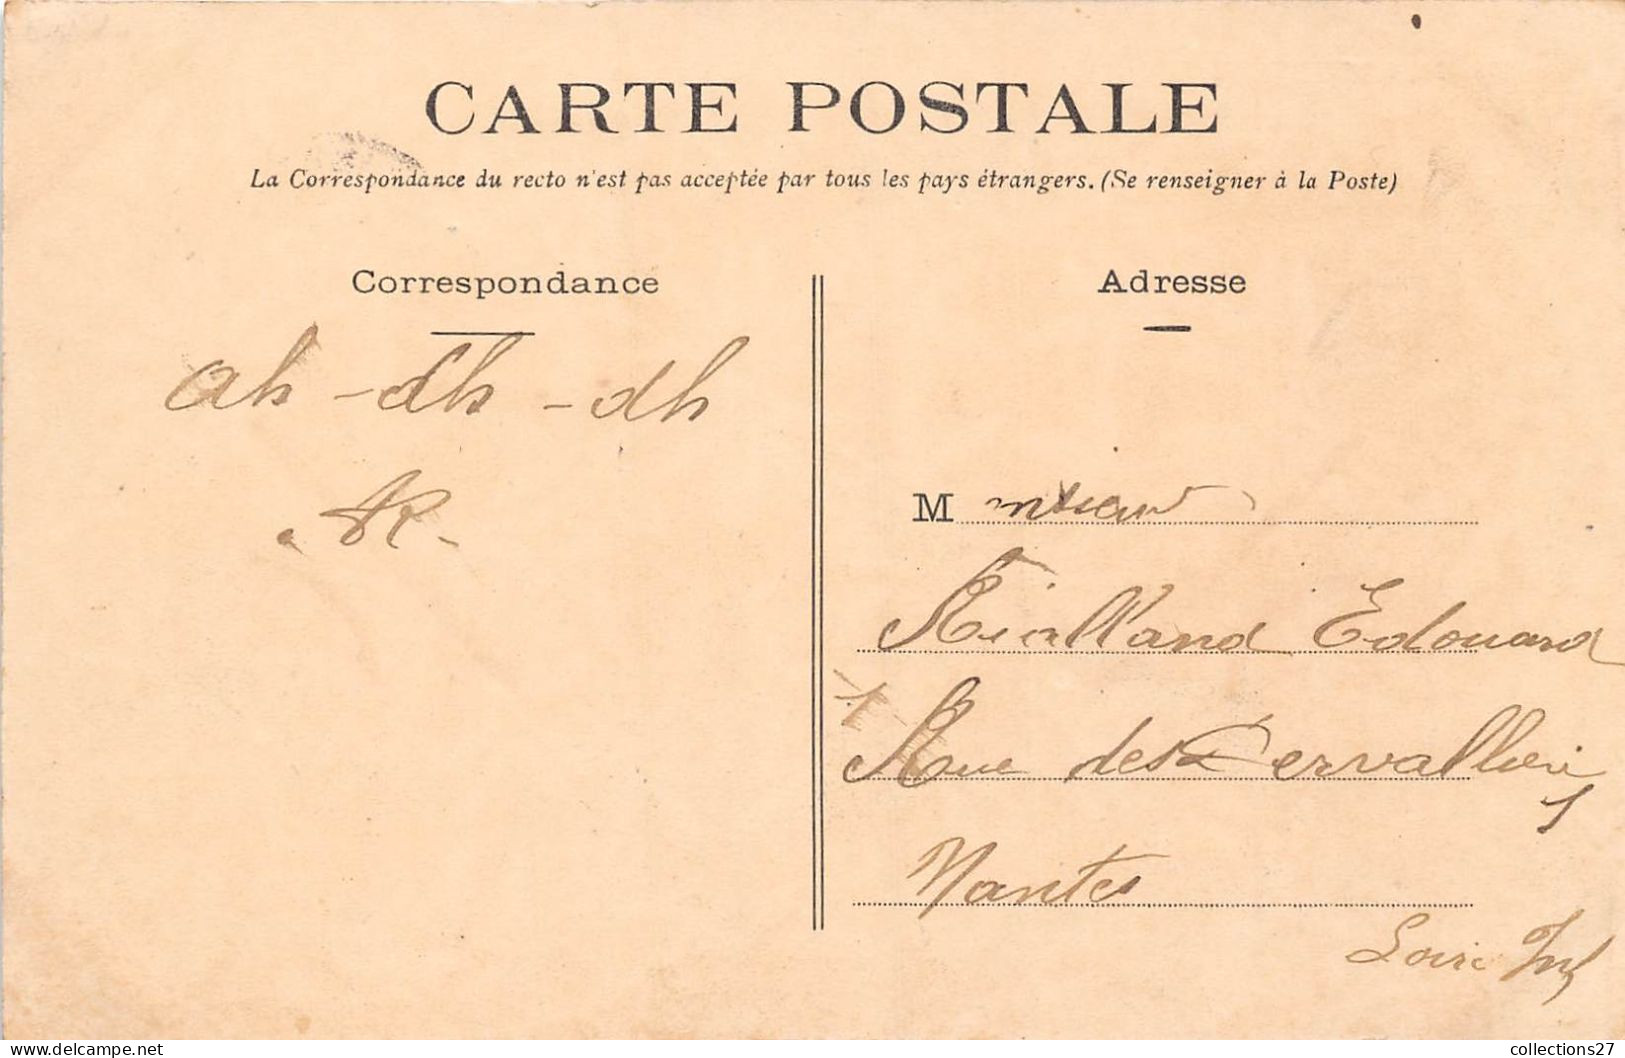 CARTE POSTALE
La Correspondance du recto n'est pas acceptée par tous les pays étrangers. (Se renseigner à la Poste)
Correspondance
ah - dh - dh
Adresse
Monsieur
Rialland Edouard
Rue des Dervallières
Nantes
Loire Inf
collections27